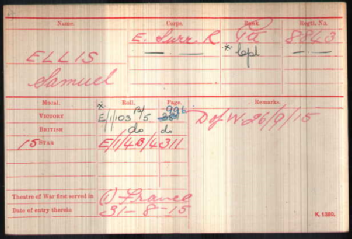 Name. Corps. Rank. Regtl. No.
E. Surr. R. Pte 8863
ELLIS
* Cpl
Samuel
Medal. Roll. Page. Remarks.
Victory
British do do
D of W 26/9/15
15 Star
Theatre of War first served in (1) France
Date of entry therein 31-8-15
K. 1380.